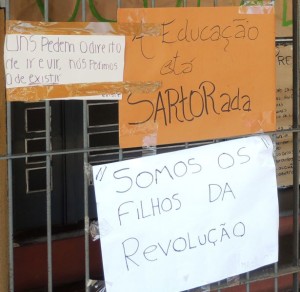 Uns Pedem O direito
de Ir e vir, nós Pedimos
O de existir
A Educação
sta
SARtORada
"SOMOS OS
FILHOS DA
REVOLUÇÃO